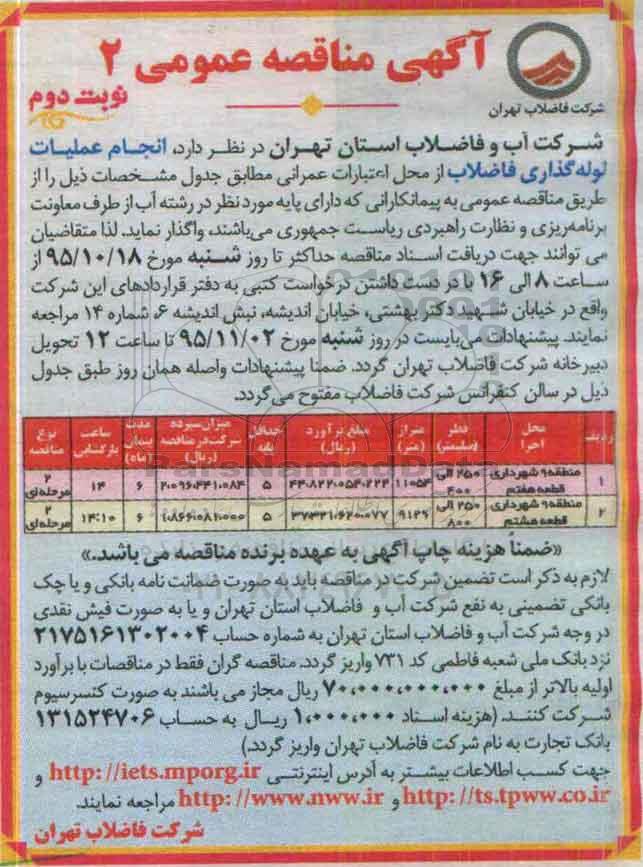 آگهی مناقصه عمومی ۲
نوبت دوم
شرکت فاضلاب تهران
شرکت آب و فاضلاب استان تهران در نظر دارد، انجام عملیات
لوله‌گذاری فاضلاب از محل اعتبارات عمرانی مطابق جدول مشخصات ذیل را از
طریق مناقصه عمومی به پیمانکارانی که دارای پایه مورد نظر در رشته آب از طرف معاونت
برنامه‌ریزی و نظارت راهبردی ریاست جمهوری می‌باشند، واگذار نماید. لذا متقاضیان
می توانند جهت دریافت اسناد مناقصه حداکثر تا روز شنبه مورخ ۹۵/۱۰/۱۸ از
ساعت ۸ الی ۱۶ با در دست داشتن درخواست کتبی به دفتر قراردادهای این شرکت
واقع در خیابان شهید دکتر بهشتی، خیابان اندیشه، نبش اندیشه ۶، شماره ۱۴ مراجعه
نمایند. پیشنهادات می‌بایست در روز شنبه مورخ ۹۵/۱۱/۰۲ تا ساعت ۱۲ تحویل
دبیرخانه شرکت فاضلاب تهران گردد. ضمنا پیشنهادات واصله همان روز طبق جدول
ذیل در سالن کنفرانس شرکت فاضلاب مفتوح می‌گردد.
ردیف محل اجرا قطر (میلیمتر) متراژ (متر) مبلغ برآورد (ریال) حداقل پایه میزان سپرده شرکت در مناقصه (ریال) مدت پیمان (ماه) ساعت بازگشایی نوع مناقصه
۱ منطقه ۹ شهرداری قطعه هفتم ۲۵۰ الی ۴۰۰ ۱۱۰۵۴ ۴۴،۸۲۲،۰۵۴،۲۲۲ ۵ ۲،۰۹۶،۴۴۱،۰۸۴ ۶ ۱۴ ۲ مرحله‌ای
۲ منطقه ۹ شهرداری قطعه هشتم ۲۵۰ الی ۸۰۰ ۹۱۲۶ ۳۷،۳۲۱،۶۲۰،۰۷۷ ۵ ۱،۸۶۶،۰۸۱،۰۰۰ ۶ ۱۴:۱۰ ۲ مرحله‌ای
«ضمناً هزینه چاپ آگهی به عهده برنده مناقصه می باشد.»
لازم به ذکر است تضمین شرکت در مناقصه باید به صورت ضمانت نامه بانکی و یا چک
بانکی تضمینی به نفع شرکت آب و فاضلاب استان تهران و یا به صورت فیش نقدی
در وجه شرکت آب و فاضلاب استان تهران به شماره حساب ۲۱۷۵۱۶۱۳۰۲۰۰۴
نزد بانک ملی شعبه فاطمی کد ۷۳۱ واریز گردد. مناقصه گران فقط در مناقصات با برآورد
اولیه بالاتر از مبلغ ۷۰،۰۰۰،۰۰۰،۰۰۰ ریال مجاز می باشند به صورت کنسرسیوم
شرکت کنند. (هزینه اسناد ۱،۰۰۰،۰۰۰ ریال به حساب ۱۳۱۵۲۴۷۰۶
بانک تجارت به نام شرکت فاضلاب تهران واریز گردد.)
جهت کسب اطلاعات بیشتر به آدرس اینترنتی http://iets.mporg.ir و
http://ts.tpww.co.ir و http://www.nww.ir مراجعه نمایند.
شرکت فاضلاب تهران
ParsNamadData